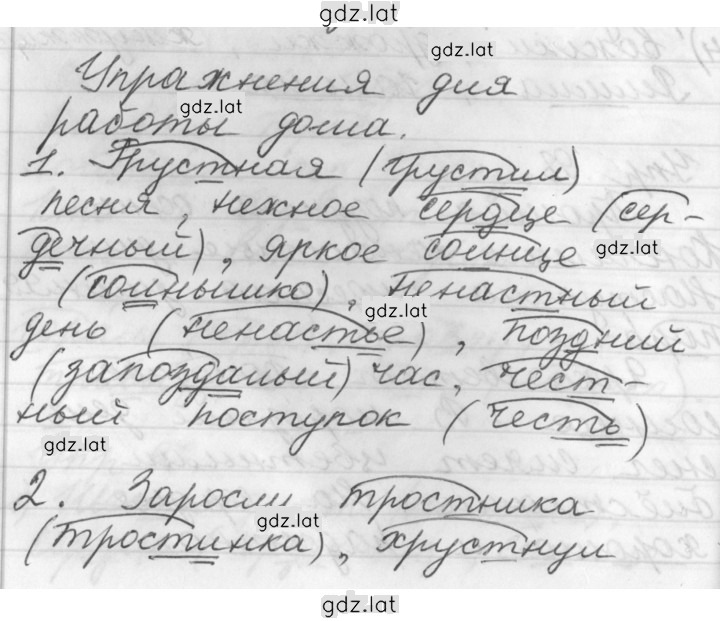 gdz.lat
gdz.lat
Упражнения для
gdz.lat
работы дома.
1. Грустная (грустил)
песня, нежное сердце (сер-
дечный), яркое солнце
gdz.lat
(солнышко), ненастный
gdz.lat
день (ненастье), поздний
(запоздалый) час, чест-
ный поступок (честь)
gdz.lat
2. Заросли тростника
gdz.lat
(тростинка), хрустнул
gdz.lat